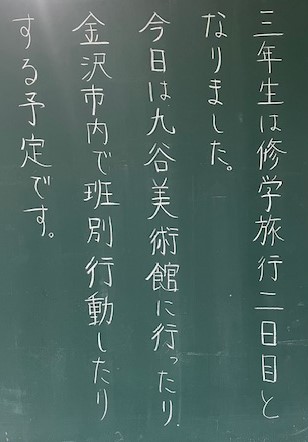 三年生は修学旅行二日目と
なりました。
今日は九谷美術館に行ったり
金沢市内で班別行動したり
する予定です。